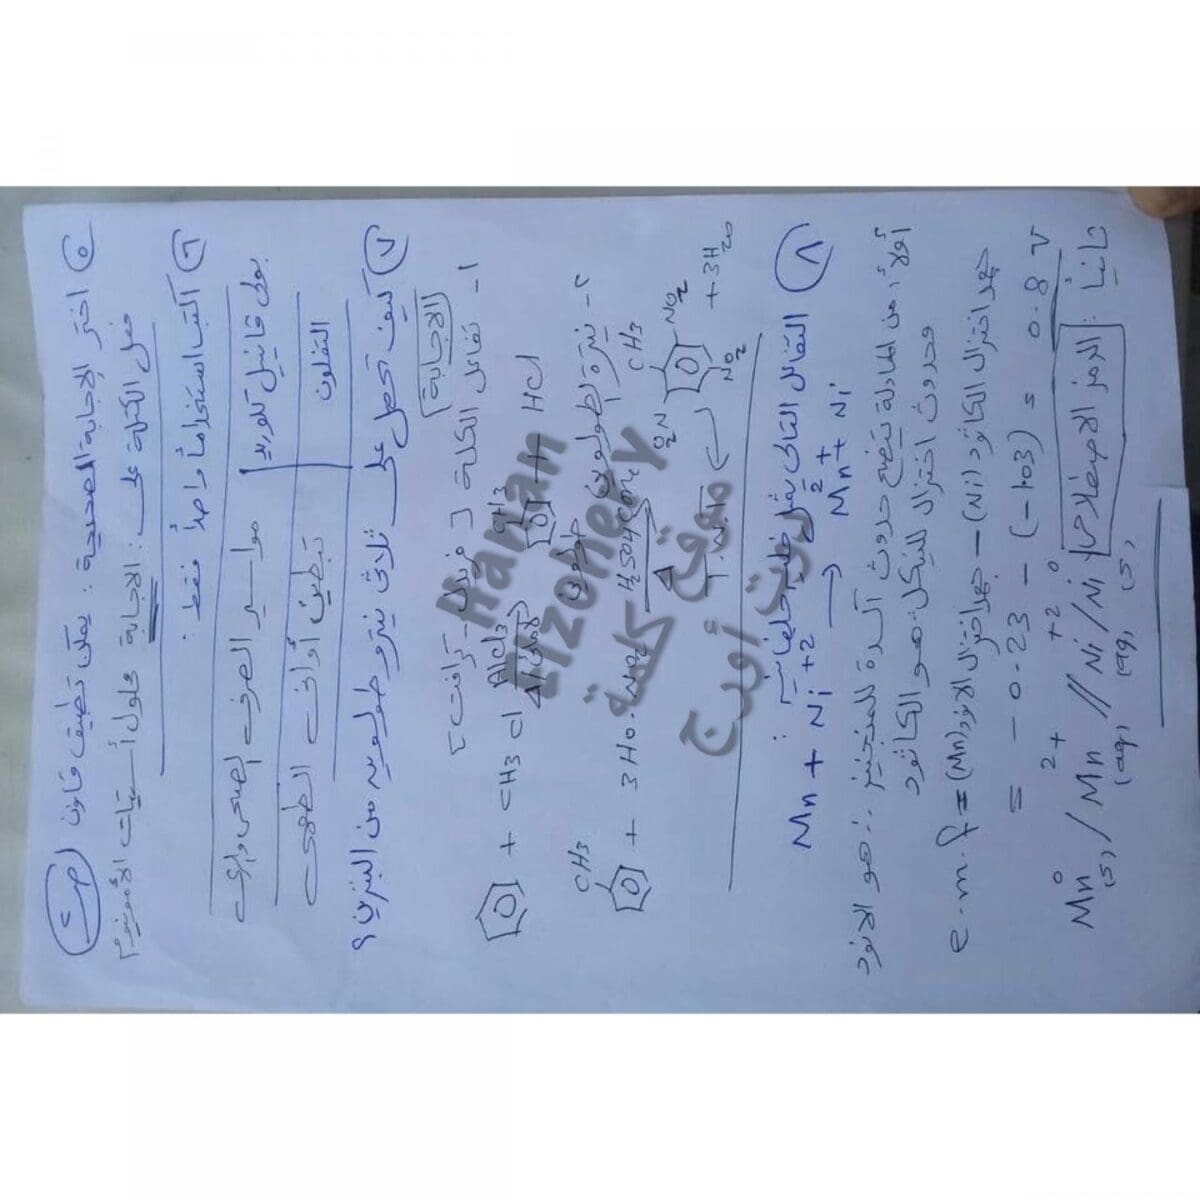 ٥ اختر الإجابة الصحيحة: يمكن تطبيق قانون
فعل الكتلة على: الإجابة محلول أسيتات الأمونيوم
٦ اكتب استخداماً واحداً فقط:
بولى فاينيل كلوريد | مواسير الصرف الصحى والرى
التفلون | تبطين أوانى الطهى
٧ كيف تحصل على ثلاثى نيترو طولوين من البنزين؟
الإجابة
١- تفاعل الكلة [فريدل - كرافت]
+ CH3Cl AlCl3 CH3 + HCl
٢- نيترة الطولوين
CH3 + 3HO.NO2 H2SO4 conc CH3 O2N NO2 NO2 + 3H2O
طولوين
T.N.T
٨ التفاعل التالى يمثل خلية جلفانية:
Mn + Ni+2 → Mn2+ + Ni
أولاً: من المعادلة يتضح حدوث أكسدة للمنجنيز ∴ هو الانود
وحدوث اختزال للنيكل ∴ هو الكاثود
e.m.f = جهد اختزال الكاثود (Ni) - جهد اختزال الانود (Mn)
= -0.23 - (-1.03) = 0.8 V
ثانياً: الرمز الاصطلاحى
Mn0(s) / Mn2+(aq) // Ni+2(aq) / Ni0(s)
Hanan
Elzohery
موقع كلمة
دوت أورج